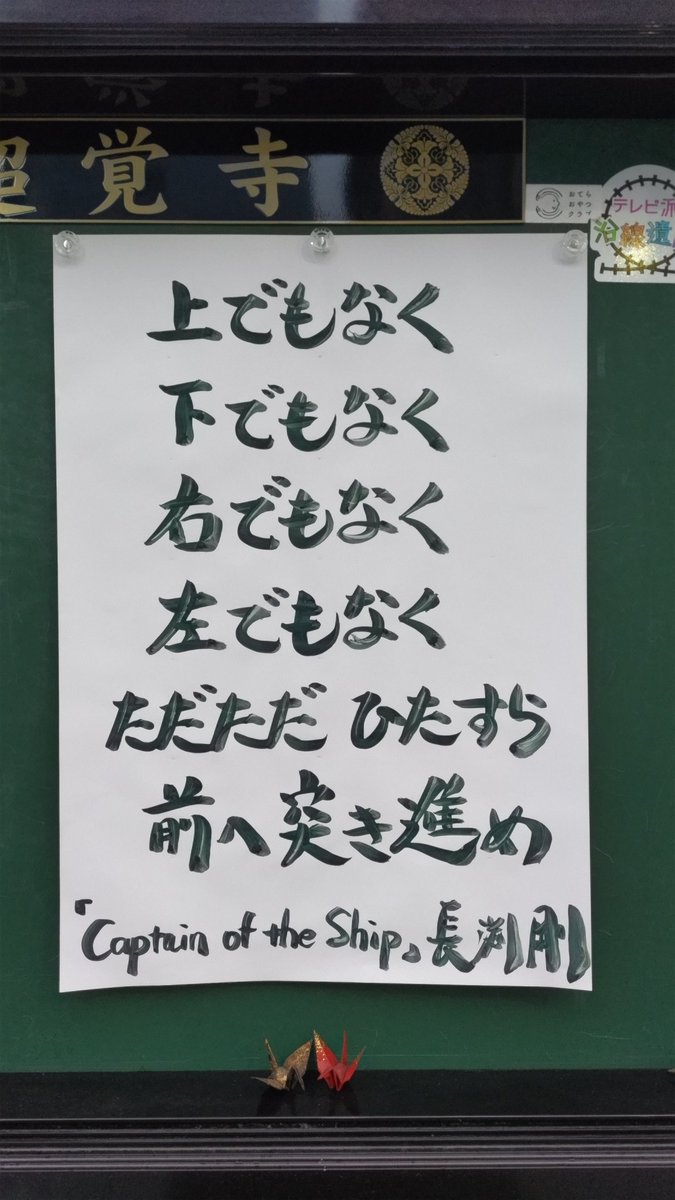 超覚寺
おてら
おやつ
クラブ
テレビ派
沿線遺
上でもなく
下でもなく
右でもなく
左でもなく
ただただ ひたすら
前へ突き進め
「Captain of the Ship」長渕剛